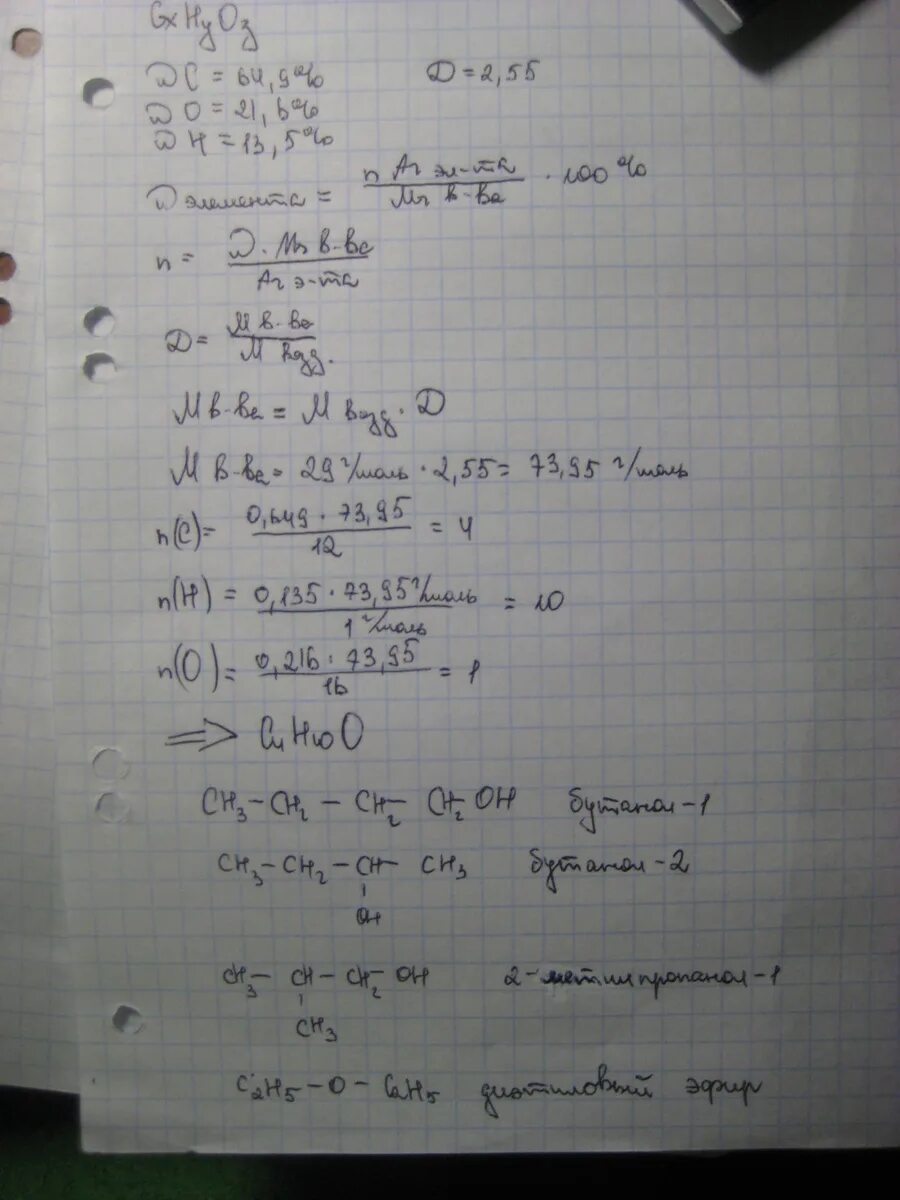 CxHyOz
ω C = 64,9% D = 2,55
ω O = 21,6%
ω H = 13,5%
ω элемента = n Ar эл-та / Mr в-ва · 100%
n = ω · Mr в-ва / Ar э-та
D = M в-ва / M возд.
M в-ва = M возд · D
M в-ва = 29 г/моль · 2,55 = 73,95 г/моль
n(C) = 0,649 · 73,95 / 12 = 4
n(H) = 0,135 · 73,95 г/моль / 1 г/моль = 10
n(O) = 0,216 · 73,95 / 16 = 1
⇒ C4H10O
CH3 – CH2 – CH2 – CH2 – OH бутанол-1
CH3 – CH2 – CH – CH3 бутанол-2
OH
CH3 – CH – CH2 – OH 2-метилпропанол-1
CH3
C2H5 – O – C2H5 диэтиловый эфир